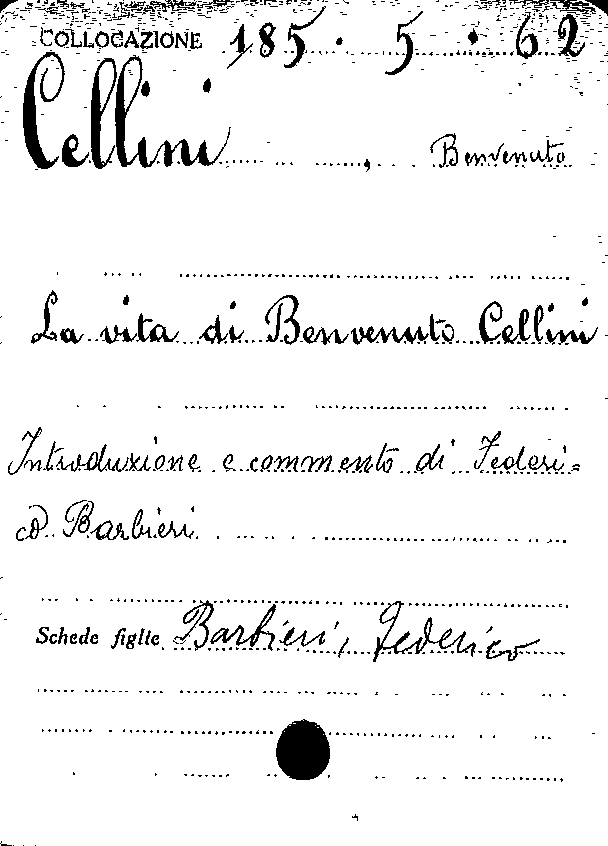 COLLOCAZIONE 185 . 5 . 62
Cellini, Benvenuto
La vita di Benvenuto Cellini
Introduzione e commento di Federi=
co Barbieri
Schede figlie Barbieri, Federico